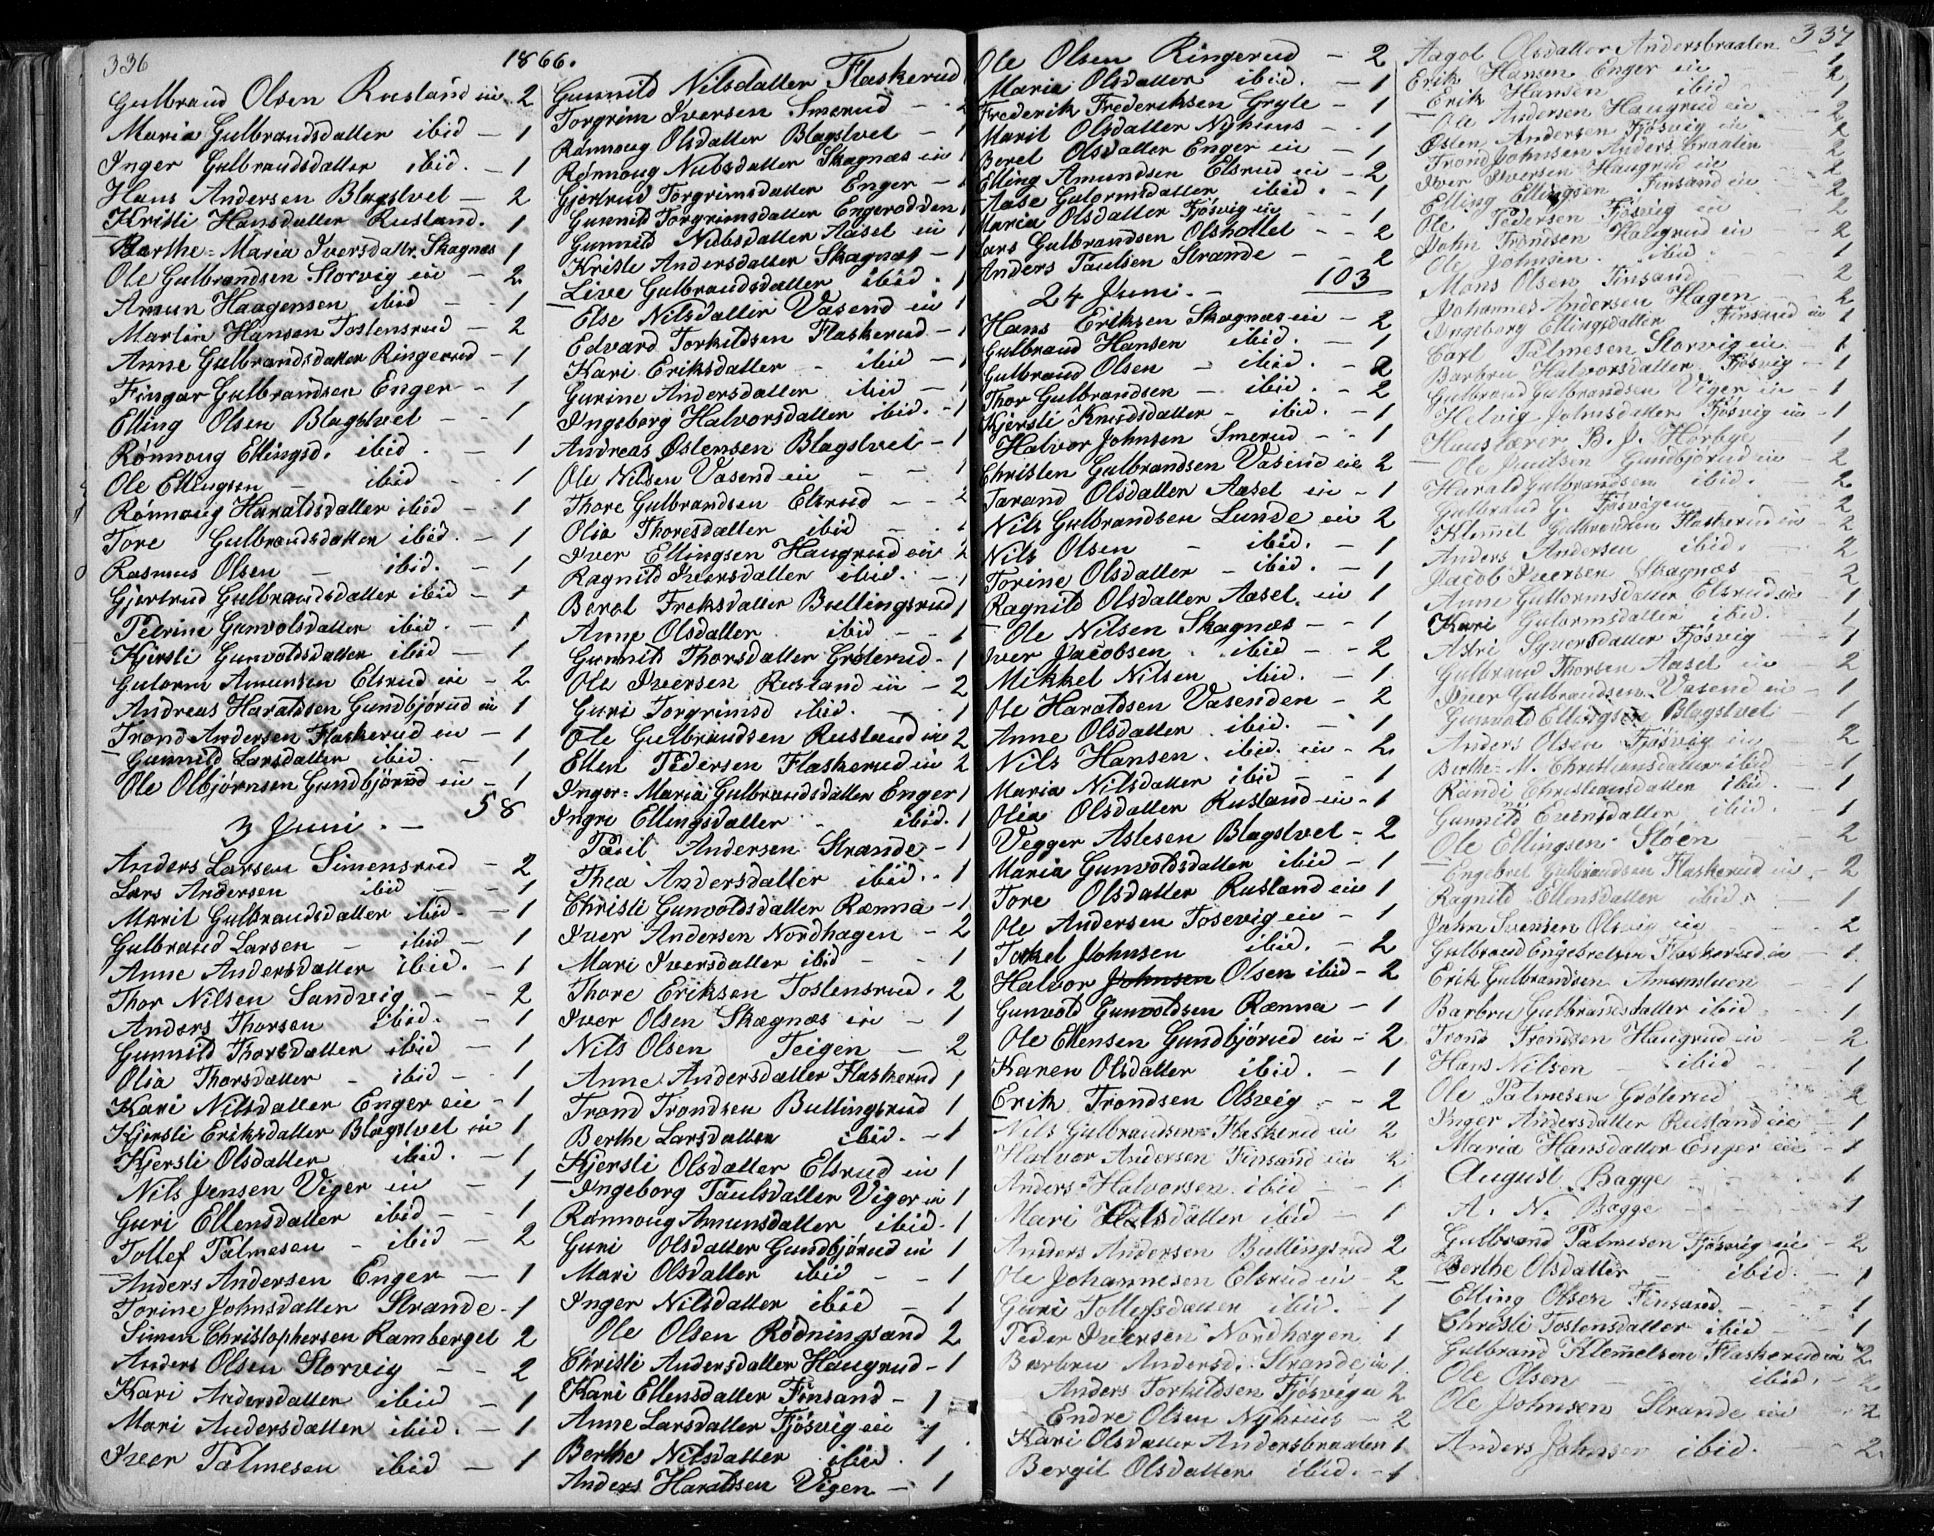 336
1866.
Gulbrand Olsen Rusland eie 2
Maria Gulbrandsdatter ibid — 1
Inger Gulbrandsdatter ibid. — 1
Hans Andersen Blagstvet — 2
Kristi Hansdatter Rusland. 1
Berthe-Maria Iversdatr. Skagnæs 1
Ole Gulbrandsen Storvig eie — 2
Amun Haagensen ibid — 1
Martin Hansen Tostensrud — 2
Anne Gulbrandsdatter Ringerud — 1
Fingar Gulbrandsen Enger — 1
Elling Olsen Blagstvet — 1
Rønnoug Ellingsd. ibid. — 1
Ole Ellingsen — ibid — 1
Rønnoug Haraldsdatter ibid — 1
Tore Gulbrandsdatter ibid. — 1
Rasmus Olsen — ibid. — 1
Gjertrud Gulbrandsdatter ibid — 1
Petrine Gunvolsdatter ibid. — 1
Kjersti Gunvoldsdatter ibid — 1
Gutorm Amunsen Elsrud eie — 2
Andreas Haraldsen Gundbjørud eie 1
Trond Andersen Flaskerud eie — 1
Gunnild Larsdatter ibid. — 1
Ole Olbjørnsen Gundbjørud eie — 1
58
3 Juni. —
Anders Larsen Simensrud — 2
Lars Andersen ibid — 1
Marit Gulbrandsdatter ibid. — 1
Gulbrand Larsen — ibid — 1
Anne Andersdatter ibid. — 1
Thor Nilsen Sandvig — 2
Anders Thorsen ibid. — 1
Gunnild Thorsdatter ibid — 1
Olia Thorsdatter — ibid — 1
Kari Nilsdatter Enger eie — 1
Kjersti Eriksdatter Blagstvet eie 1
Kjersti Olsdatter ibid. — 1
Nils Jensen Viger eie — 1
Guri Ellensdatter ibid — 1
Tollef Palmesen — ibid — 2
Anders Andersen Enger — 1
Torine Johnsdatter Strande — 1
Simen Christophersen Ramberget 2
Anders Olsen Storvig — 2
Kari Andersdatter ibid — 1
Mari Andersdatter ibid. — 1
Iver Palmesen ibid — 1
Gunnild Nilsdatter Flaskerud
Torgrim Iversen Smerud — 2
Rønnoug Olsdatter Blagstvet — 1
Rønnoug Nubsdatter Skagnæs eie 1
Gjertrud Torgrimsdatter Enger — 1
Gunnild Torgrimsdatter Engerodden 1
Gunnild Nubsdatter Aaset eie 1
Kristi Andersdatter Skagnæs — 1
Live Gulbrandsdatter ibid. 1
Else Nilsdatter Vasend eie 1
Edvard Torkildsen Flaskerud — 1
Kari Eriksdatter — ibid — 1
Gurine Andersdatter ibid — 1
Ingeborg Halvorsdatter ibid. — 1
Andreas Østensen Blagstvet — 1
Ole Nilsen Vasend eie — 1
Thore Gulbrandsen Elsrud — 2
Olia Thoresdatter ibid — 1
Iver Ellingsen Haugrud eie 2
Ragnild Iversdatter ibid. — 1
Berat Freksdatter Bullingsrud 1
Anne Olsdatter ibid — 1
Gunnild Thorsdatter Grøterud — 1
Ole Iversen Rusland eie — 2
Guri Torgrimsd ibid. — 1
Ole Gulbrandsen Rusland eie 2
Ellen Pedersen Flaskerud eie 2
Inger-Maria Gulbrandsdatter Enger 1
Ingri Ellingsdatter — ibid. 1
Paul Andersen Strande — 1
Thea Andersdatter ibid. 1
Christi Gunvoldsdatter Rænna — 1
Iver Andersen Nordhagen — 2
Mari Iversdatter ibid — 1
Thore Eriksen Tostensrud. 2
Iver Olsen Skagnæs eie — 1
Nils Olsen Teigen — 2
Anne Andersdatter Flaskerud 1
Trond Trondsen Bullingsrud 1
Berthe Larsdatter ibid. — 1
Kjersti Olsdatter Elsrud eie 1
Ingeborg Paulsdatter Viger eie 1
Rønnoug Amunsdatter ibid. 1
Guri Olsdatter Gundbjørud eie 1
Mari Olsdatter ibid — 1
Inger Nilsdatter ibid — 1
Ole Olsen Rødningsand 2
Christi Andersdatter Haugrud — 1
Kari Ellensdatter Finsand — 1
Anne Larsdatter Fjøsvig eie 1
Berthe Nilsdatter ibid. 1
Anders Haraldsen Vigen — 1
337
Ole Olsen Ringerud — 2
Maria Olsdatter ibid. — 1
Frederik Frederiksen Gryte — 1
Marit Olsdatter Nyhuus — 1
Beret Olsdatter Enger eie — 1
Elling Amundsen Elsrud eie — 2
Aase Gutormsdatter ibid. — 1
Maria Olsdatter Fjøsvig eie — 1
Lars Gulbrandsen Olshollet — 2
Anders Paulsen Strande — 2
24 Juni. — 103
Hans Eriksen Skagnæs eie — 2
Gulbrand Hansen ibid. — 1
Gulbrand Olsen — ibid. — 2
Thor Gulbrandsen — ibid. — 2
Kjersti Knudsdatter — ibid. — 1
Halvor Johnsen Smerud — 1
Christen Gulbrandsen Vasend eie 2
Tarand Olsdatter Aaset eie — 1
Nils Gulbrandsen Lunde eie 2
Nils Olsen — ibid. — 1
Torine Olsdatter — ibid. — 1
Ragnild Olsdatter Aaset eie 1
Ole Nilsen Skagnæs — 1
Iver Jacobsen ibid — 2
Mikkel Nilsen ibid. — 1
Ole Haraldsen Vasenden — 2
Anne Olsdatter ibid. — 1
Nils Hansen ibid. eie — 2
Maria Nilsdatter ibid — 1
Olia Olsdatter Rusland eie — 1
Vegger Aslesen Blagstvet — 2
Maria Gunvoldsdatter ibid — 1
Tore Olsdatter Rusland eie 1
Ole Andersen Fosevig eie — 1
Torkel Johnsen ibid. — 2
Halvor Johnsen Olsen ibid — 2
Gunvold Gunvoldsen Rænna — 1
Ole Ellensen Gundbjørud eie — 2
Karen Olsdatter ibid. — 1
Erik Trondsen Olsvig — 2
Nils Gulbrandsen Flaskerud eie 2
Halvor Andersen Finsand eie 2
Anders Halvorsen ibid — 1
Mari Nilsdatter ibid — 1
Anders Andersen Bullingsrud 2
Ole Johannesen Elsrud eie — 2
Guri Tollefsdatter ibid. — 1
Peder Iversen Nordhagen 1
Barbru Andersd. Strande eie 1
Anders Torkildsen Fjøsvig eie 2
Endre Olsen Nyhuus — 2
Kari Olsdatter Andersbraaten 1
Bergit Olsdatter ibid. — 1
Aagot Olsdatter Andersbraaten 1
Erik Hansen Enger eie — 2
Erik Hansen ibid — 1
Ole Andersen Haugrud eie — 2
Østen Andersen Fjøsvig eie 2
Trond Johnsen Andersbraaten 2
Iver Iversen Haugrud eie 2
Elling Ellingsen Finsand eie 2
Ole Pedersen Fjøsvig eie 2
John Trondsen Haugrud eie — 2
Ole Johnsen ibid. — 1
Mons Olsen Finsand 2
Johannes Andersen Hagen — 2
Ingeborg Ellingsdatter Finsand eie 1
Carl Palmesen Storvig eie 1
Barbru Halvorsdatter Fjøsvig — 1
Gulbrand Gulbrandsen Viger eie — 1
Helvig Johnsdatter Fjøsvig eie — 1
Huuslærer B. J. Hørbye 1
Ole Juulsen Gundbjørud eie — 2
Harald Gulbrandsen ibid. — 2
Gulbrand G. Fjøsvigen 2
Klemmet Gulbrandsen Flaskerud eie 2
Anders Andersen ibid. — 2
Jacob Iversen Skagnæs — 2
Anne Guttormsdatter Elsrud eie — 1
Kari Gutormsdatter ibid. 1
Astri Syversdatter Fjøsvig — 1
Gulbrand Thorsen Aaset eie — 2
Iver Gulbrandsen Vasend eie — 1
Gunvald Ellingsen Blagstvet 1
Anders Olsen Fjøsvig eie 2
Berthe M. Christiansdatter ibid — 1
Randi Christiansdatter ibid. 1
Gunnild Evensdatter ibid. 1
Ole Ellingsen Støen 2
Engebret Gulbrandsen Flaskerud eie 2
Ragnild Ellensdatter ibid. — 1
John Svensen Olsvig eie — 2
Gulbrand Engebretsen Flaskerud eie — 1
Erik Gulbrandsen — 1
Barbru Gulbrandsdatter ibid — 1
Trond Trondsen Haugrud eie — 2
Hans Nilsen ibid — 1
Ole Palmesen Grøterud 2
Inger Andersdatter Rusland eie — 1
Maria Hansdatter Enger eie — 1
August Bagge — 1
A. N. Bagge — 1
Gulbrand Palmesen Fjøsvig eie — 2
Berthe Olsdatter — ibid. — 1
Elling Olsen Finsand. — 1
Christi Tostensdatter ibid — 1
Gulbrand Klemmetsen Flaskerud eie 2
Ole Olsen — ibid. — 2
Ole Johnsen Strande eie 2
Anders Johnsen ibid. — 2